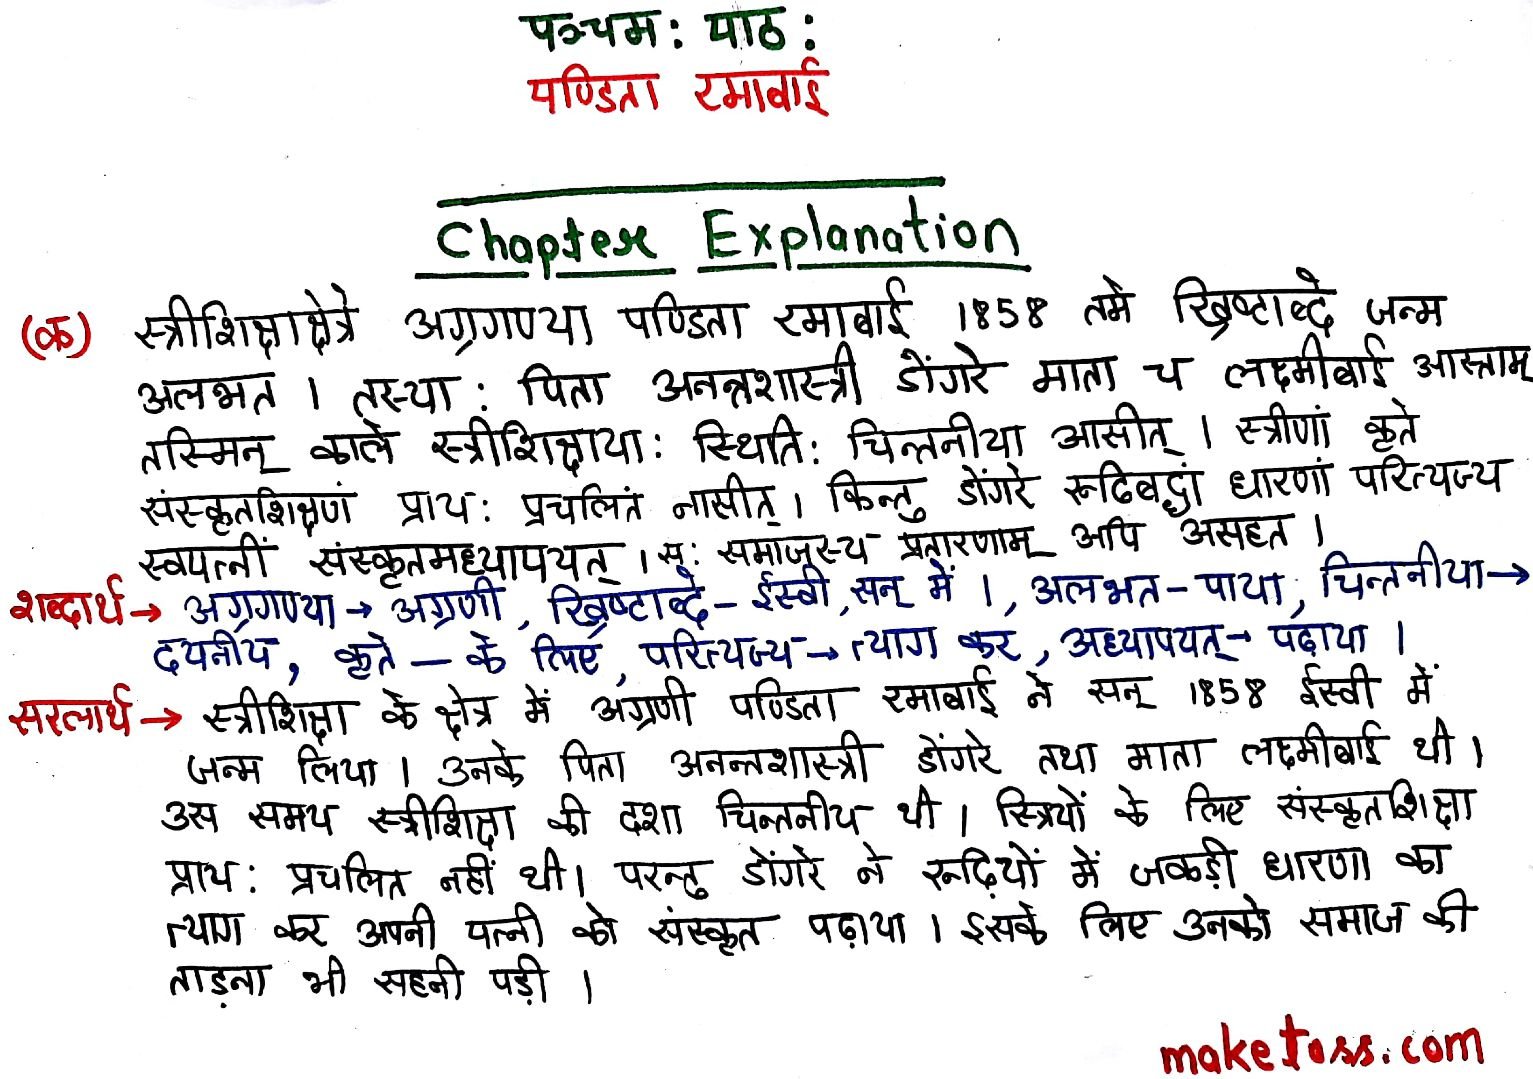 पञ्चम: पाठ:
पण्डिता रमाबाई
Chapter Explanation
(क) स्त्रीशिक्षाक्षेत्रे अग्रगण्या पण्डिता रमाबाई 1858 तमे ख्रिष्टाब्दे जन्म
अलभत । तस्या: पिता अनन्तशास्त्री डोंगरे माता च लक्ष्मीबाई आस्ताम्
तस्मिन् काले स्त्रीशिक्षाया: स्थिति: चिन्तनीया आसीत् । स्त्रीणां कृते
संस्कृतशिक्षणं प्राय: प्रचलितं नासीत् । किन्तु डोंगरे रूढिबद्धां धारणां परित्यज्य
स्वपत्नीं संस्कृतमध्यापयत् । स: समाजस्य प्रतारणाम् अपि असहत ।
शब्दार्थ→ अग्रगण्या→ अग्रणी, ख्रिष्टाब्दे- ईस्वी, सन् में ।, अलभत- पाया, चिन्तनीया→
दयनीय, कृते - के लिए, परित्यज्य→ त्याग कर, अध्यापयत्→ पढ़ाया ।
सरलार्थ→ स्त्रीशिक्षा के क्षेत्र में अग्रणी पण्डिता रमाबाई ने सन् 1858 ईस्वी में
जन्म लिया । उनके पिता अनन्तशास्त्री डोंगरे तथा माता लक्ष्मीबाई थी ।
उस समय स्त्रीशिक्षा की दशा चिन्तनीय थी । स्त्रियों के लिए संस्कृतशिक्षा
प्राय: प्रचलित नहीं थी । परन्तु डोंगरे ने रूढ़ियों में जकड़ी धारणा का
त्याग कर अपनी पत्नी को संस्कृत पढ़ाया । इसके लिए उनको समाज की
ताड़ना भी सहनी पड़ी ।
maketoss.com